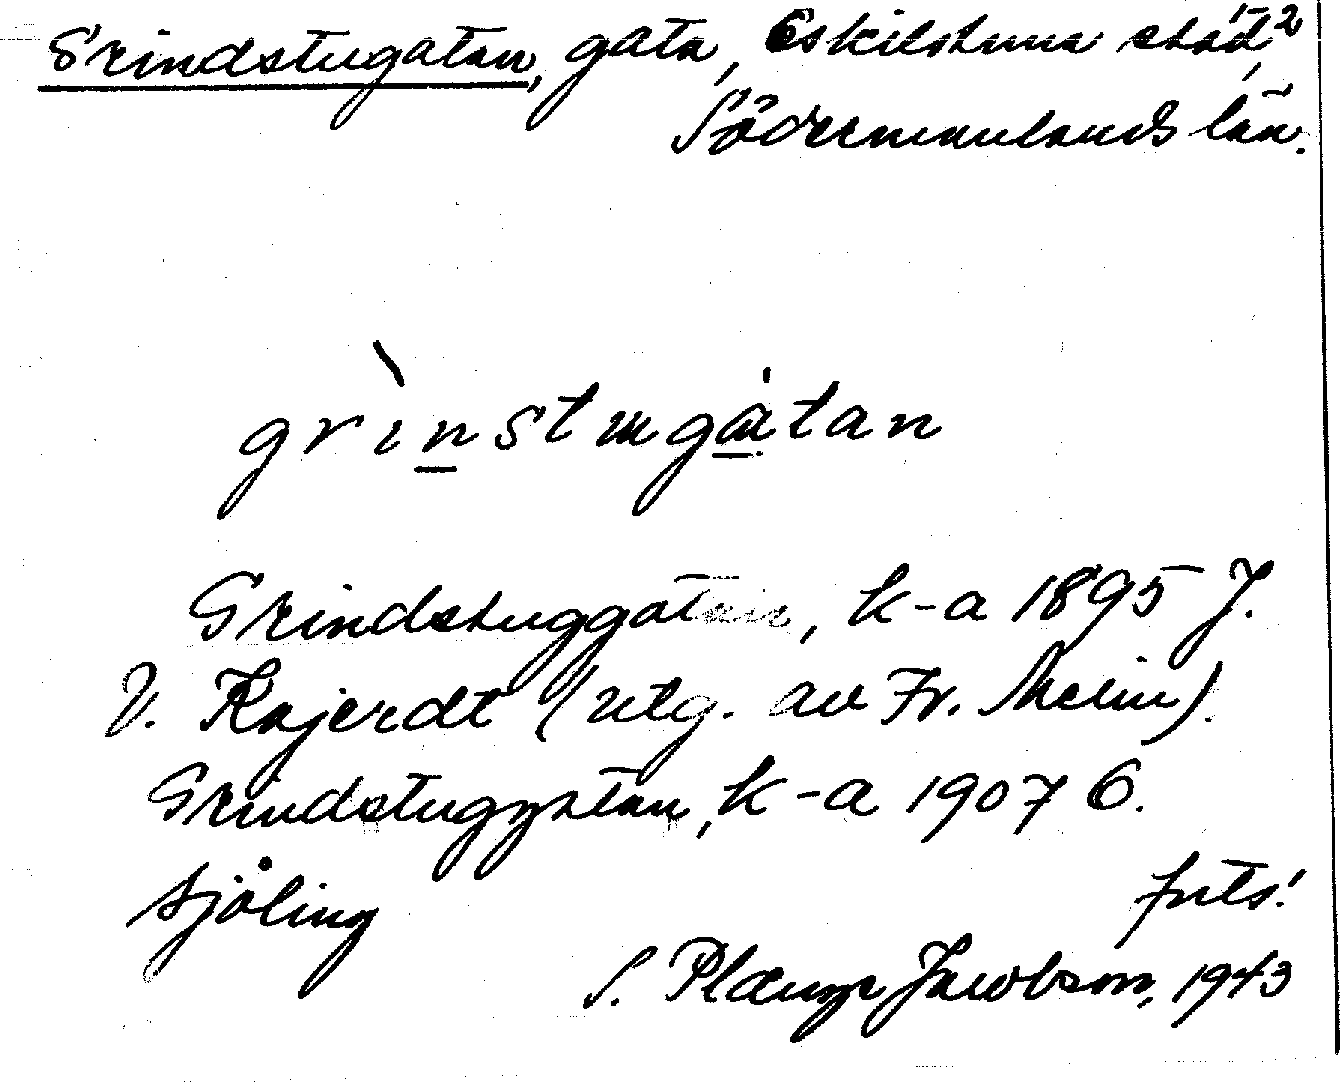 Grindstugatan, gata, Eskilstuna stad,²
Södermanlands län.
grinstugatan
Grindstuggatan, k-a 1895 J.
V. Kajerdt (utg. av Fr. Melin).
Grindstugugatan, k-a 1907 C.
Sjöling
forts!
S. Plaenge Jacobson, 1943